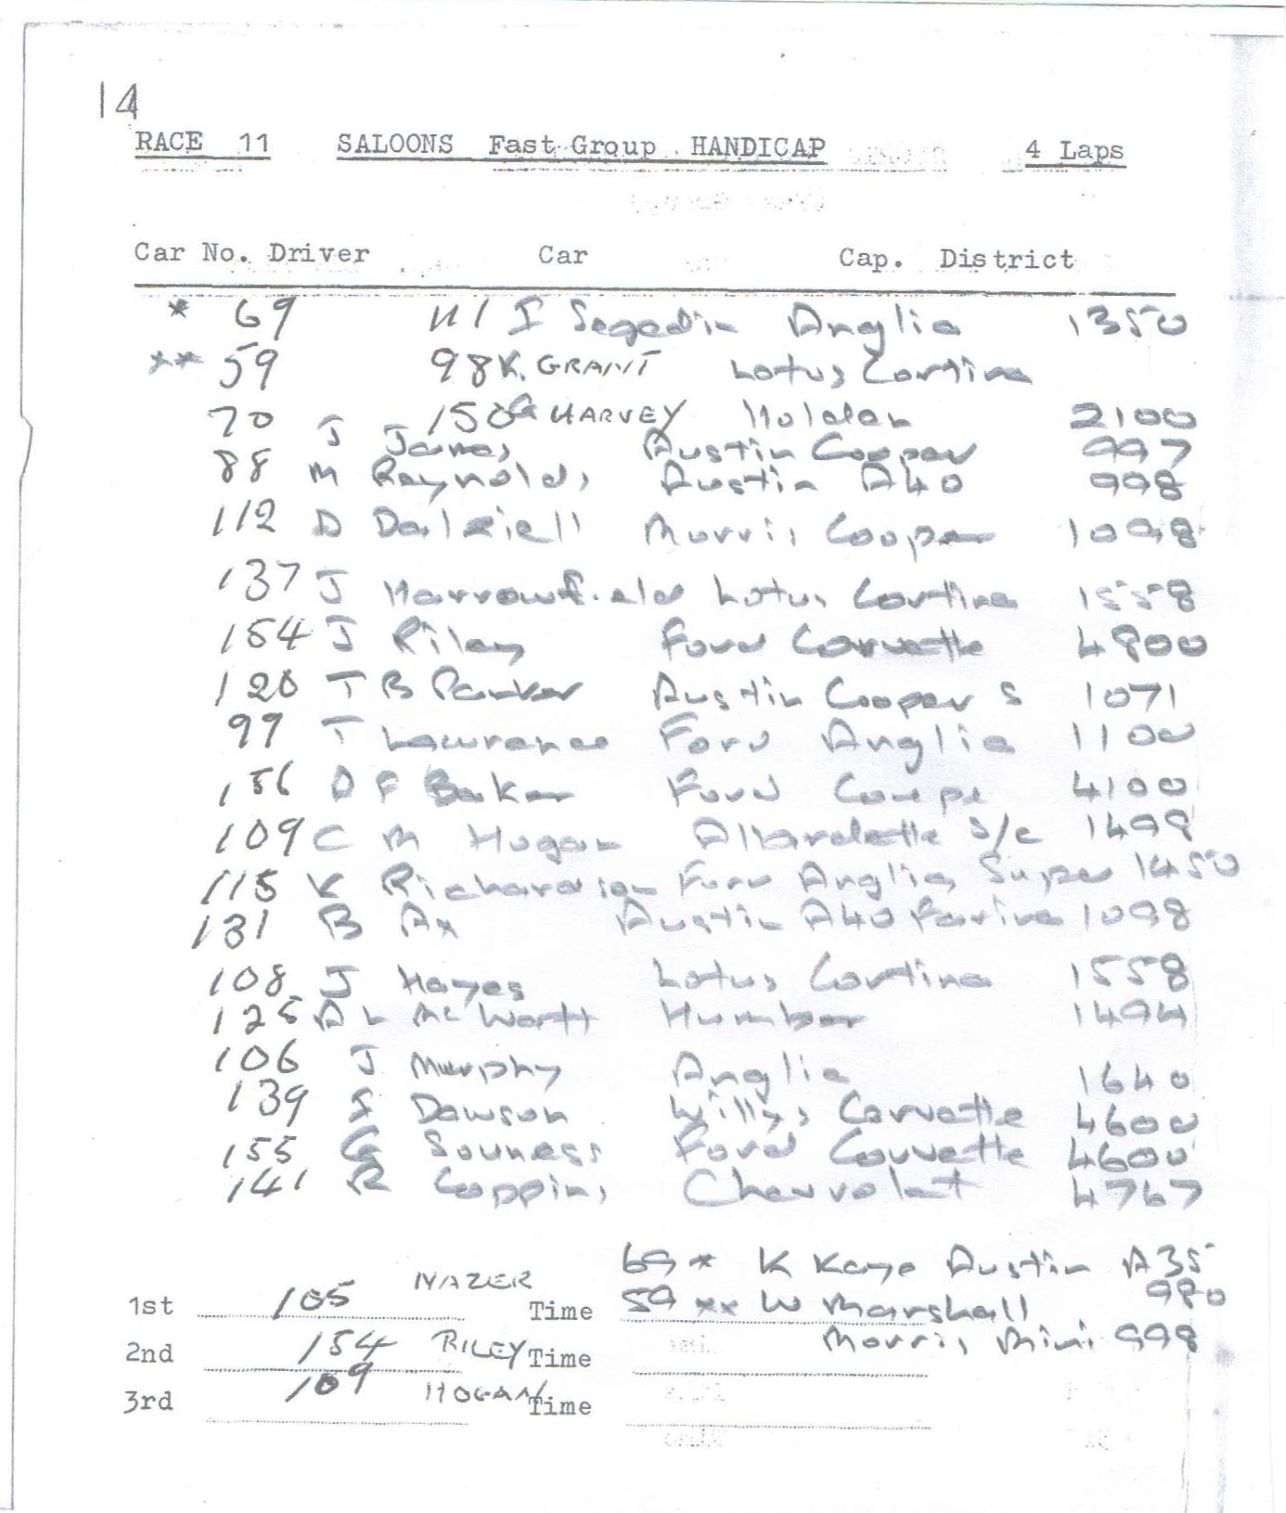 14
RACE 11 SALOONS Fast Group HANDICAP 4 Laps
Car No. Driver Car Cap. District
* 69 111 I Segedin Anglia 1350
** 59 98 K. GRANT Lotus Cortina
70 150 G HARVEY Holden 2100
J James Austin Cooper 997
88 M Reynolds Austin A40 998
112 D Dalziell Morris Cooper 1098
137 J Harrowfield Lotus Cortina 1558
154 J Riley Ford Corvette 4800
120 T B Parker Austin Cooper S 1071
99 T Lawrence Ford Anglia 1100
156 D F Baker Ford Coupe 4100
109 C M Hogan Allardette S/C 1498
115 K Richardson Ford Anglia Super 1450
131 B Ax Austin A40 Farina 1098
108 J Hayes Lotus Cortina 1558
125 A L McWartt Humber 1494
106 J Murphy Anglia 1640
139 S Dawson Willys Corvette 4600
155 G Souness Ford Corvette 4600
141 R Coppins Chevrolet 4767
69 * K Kaye Austin A35 980
1st 105 NAZER Time 59 ** W Marshall
Morris Mini 998
2nd 154 RILEY Time
3rd 109 HOGAN Time